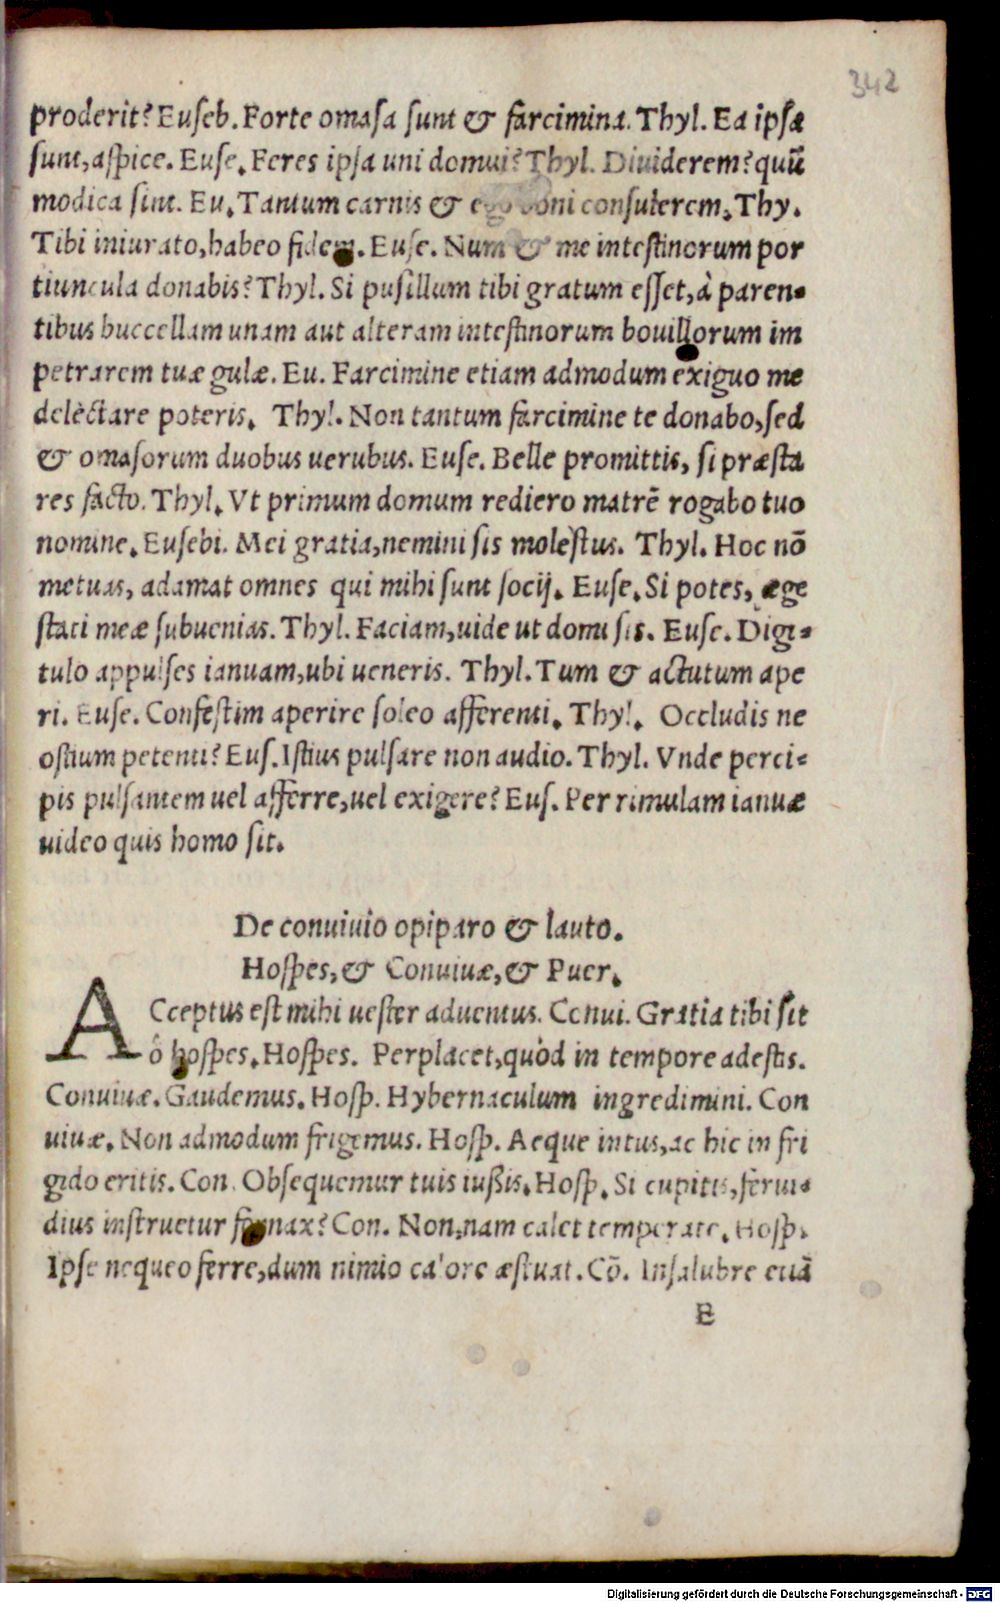 342
proderit? Euseb. Forte omasa sunt & farcimina. Thyl. Ea ipsæ
sunt, aspice. Euse. Feres ipsa uni domui? Thyl. Diuiderem? quũ
modica sint. Eu. Tantum carnis & ego boni consulerem. Thy.
Tibi iniurato, habeo fidem. Euse. Num & me intestinorum por
tiuncula donabis? Thyl. Si pusillum tibi gratum esset, à paren-
tibus buccellam unam aut alteram intestinorum bouillorum im
petrarem tuæ gulæ. Eu. Farcimine etiam admodum exiguo me
delèctare poteris. Thyl. Non tantum farcimine te donabo, sed
& omasorum duobus uerubus. Euse. Belle promittis, si præsta
res facto. Thyl. Vt primum domum rediero matrẽ rogabo tuo
nomine. Eusebi. Mei gratia, nemini sis molestus. Thyl. Hoc nõ
metuas, adamat omnes qui mihi sunt socij. Euse. Si potes, æge
stati meæ subuenias. Thyl. Faciam, uide ut domi sis. Euse. Digi-
tulo appulses ianuam, ubi ueneris. Thyl. Tum & actutum ape
ri. Euse. Confestim aperire soleo afferenti. Thyl. Occludis ne
ostium petenti? Eus. Istius pulsare non audio. Thyl. Vnde perci-
pis pulsantem uel afferre, uel exigere? Eus. Per rimulam ianuæ
uideo quis homo sit.
De conuiuio opiparo & lauto.
Hospes, & Conuiuæ, & Puer.
ACceptus est mihi uester aduentus. Conui. Gratia tibi sit
ô hospes. Hospes. Perplacet, quòd in tempore adestis.
Conuiuæ. Gaudemus. Hosp. Hybernaculum ingredimini. Con
uiuæ. Non admodum frigemus. Hosp. Aeque intus, ac hic in fri
gido eritis. Con. Obsequemur tuis iußis. Hosp. Si cupitis, ferui-
dius instruetur fornax? Con. Non, nam calet temperate. Hosp.
Ipse nequeo ferre, dum nimio calore æstuat. Cõ. Insalubre etiã
E
Digitalisierung gefördert durch die Deutsche Forschungsgemeinschaft - DFG